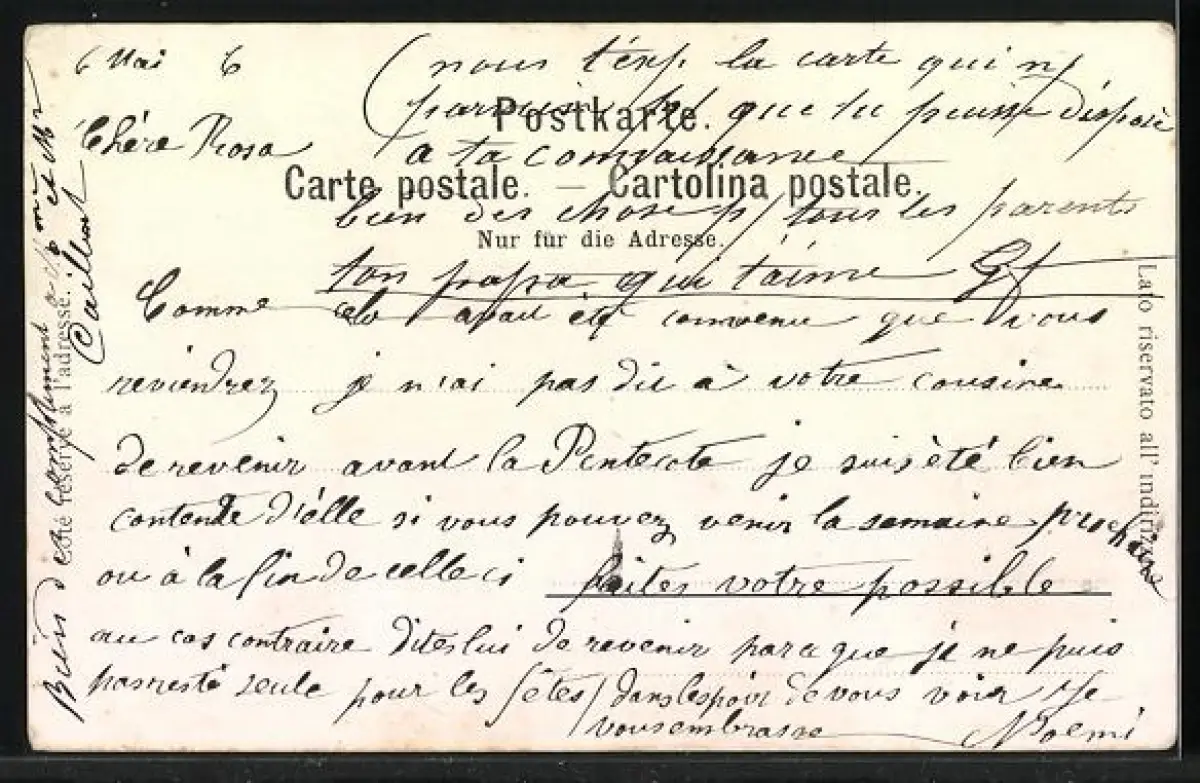 6 Mai 6
(nous t'exp. la carte qui n/
que tu puisse
Chère Rosa
a ta connaissance
Postkarte.
Carte postale. — Cartolina postale.
bien des choses p/ tous les parents
Nur für die Adresse.
ton papa qui t'aime
Comme cela avait été convenu que vous
reviendrez je n'ai pas dit à votre cousine
de revenir avant la Pentecote je suis été bien
contente d'élle si vous pouvez venir la semaine prochaine
ou à la fin de celle ci faites votre possible
au cas contraire dites lui de revenir parce que je ne puis
pas resté seule pour les fêtes/ dans l'espoir de vous voir Je
vous embrasse Noemi
Côté réservé à l'adresse.
Bien des Compliment a M^me et M^r
Caillout
Lato riservato all' indirizzo